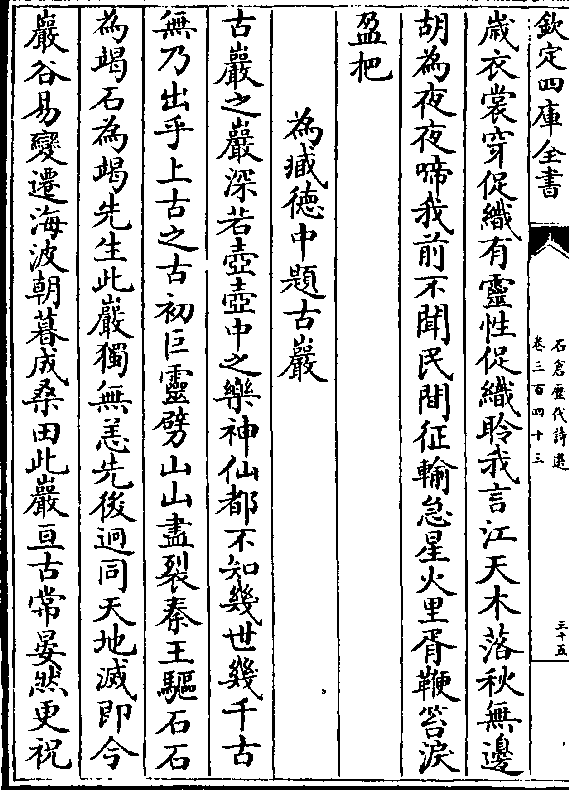 欽定四庫全書
石倉歷代詩選
卷三百四十三
三十五
歳衣裳穿促織有靈性促織聆我言江天木落秋無邊
胡為夜夜啼我前不聞民間征輸急星火里胥鞭笞淚
盈把
為臧徳中題古巖
古巖之巖深若壺壺中之樂神仙都不知幾世幾千古
無乃出乎上古之古初巨靈劈山山盡裂秦王驅石石
為竭石為竭先生此巖獨無恙先後迥同天地滅即今
巖谷易變遷海波朝暮成桑田此巖亘古常晏然更祝